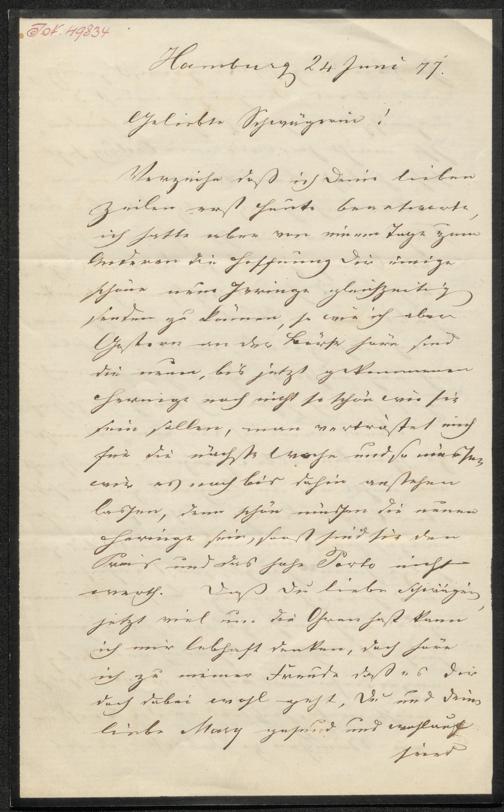 Tok. 49834
Hamburg 24 Juni 77.
Geliebte Schwägerin!
Verzeihe daß ich Deine lieben
Zeilen erst heute beantworte,
ich hatte aber von einem Tage zum
Anderen die Hoffnung Dir einige
schöne neue Heringe gleichzeitig
senden zu können, so wie ich aber
Gestern an der Börse höre sind
die neuen, bis jetzt gekommenen
Heeringe noch nicht so schön wie sie
sein sollen, man vertröstet mich
für die nächste Woche und so müssen
wir es noch bis dahin anstehen
lassen, denn schön müssen die neuen
Heeringe sein, sonst sind sie den
Preis und das hohe Porto nicht
werth. Daß Du liebe Schwägerin,
jetzt viel um die Ohren hast kann
ich mir lebhaft denken, doch höre
ich zu meiner Freude daß es Dir
doch dabei wohl geht, Du und Deine
liebe Mary gesund und wohlauf
seid